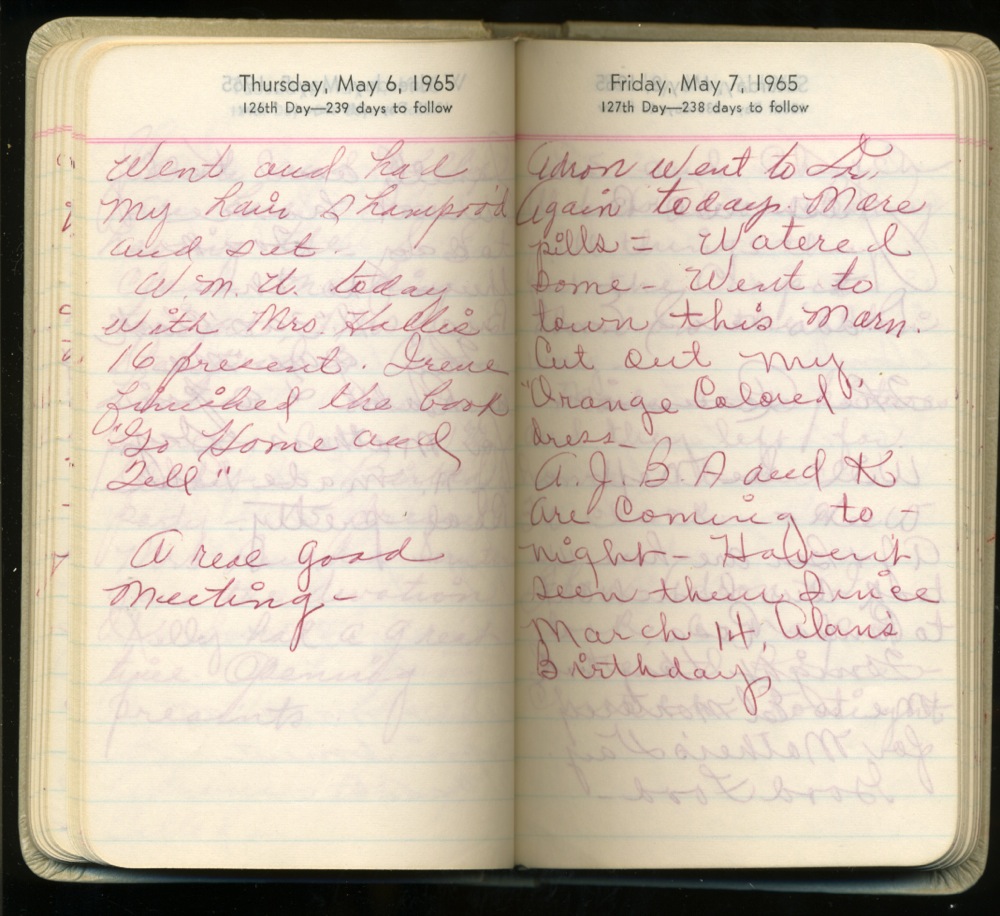 Thursday, May 6, 1965
126th Day—239 days to follow
Went and had
my hair Shampoo'd
and set.
W. M. U. today
with Mrs. Hollis
16 present. Irene
finished the book
"Go Home and
Tell"
A real good
Meeting -
Friday, May 7, 1965
127th Day—238 days to follow
went to Dr.
Again today. More
pills = Watered
Some - Went to
town this Morn.
Cut out my
"Orange Colored"
dress -
A. J. B. A and K
Are Coming to -
night - Haven't
seen them Since
March 14, Alan's
Birthday